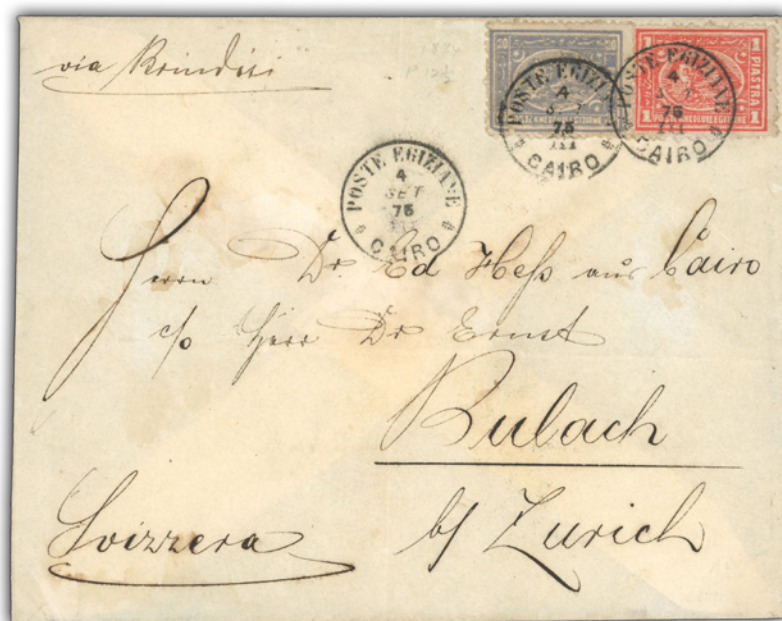 via Brindisi
1 PIASTRA 1
POSTE EGIZIANE
4
75
III
CAIRO
POSTE EGIZIANE
4
75
III
CAIRO
POSTE EGIZIANE
4
SET
75
III
CAIRO
Herrn Dr. Ed Heß aus Cairo
c/o Herr Dr Ernst
Bulach
b/ Zurich
Svizzera